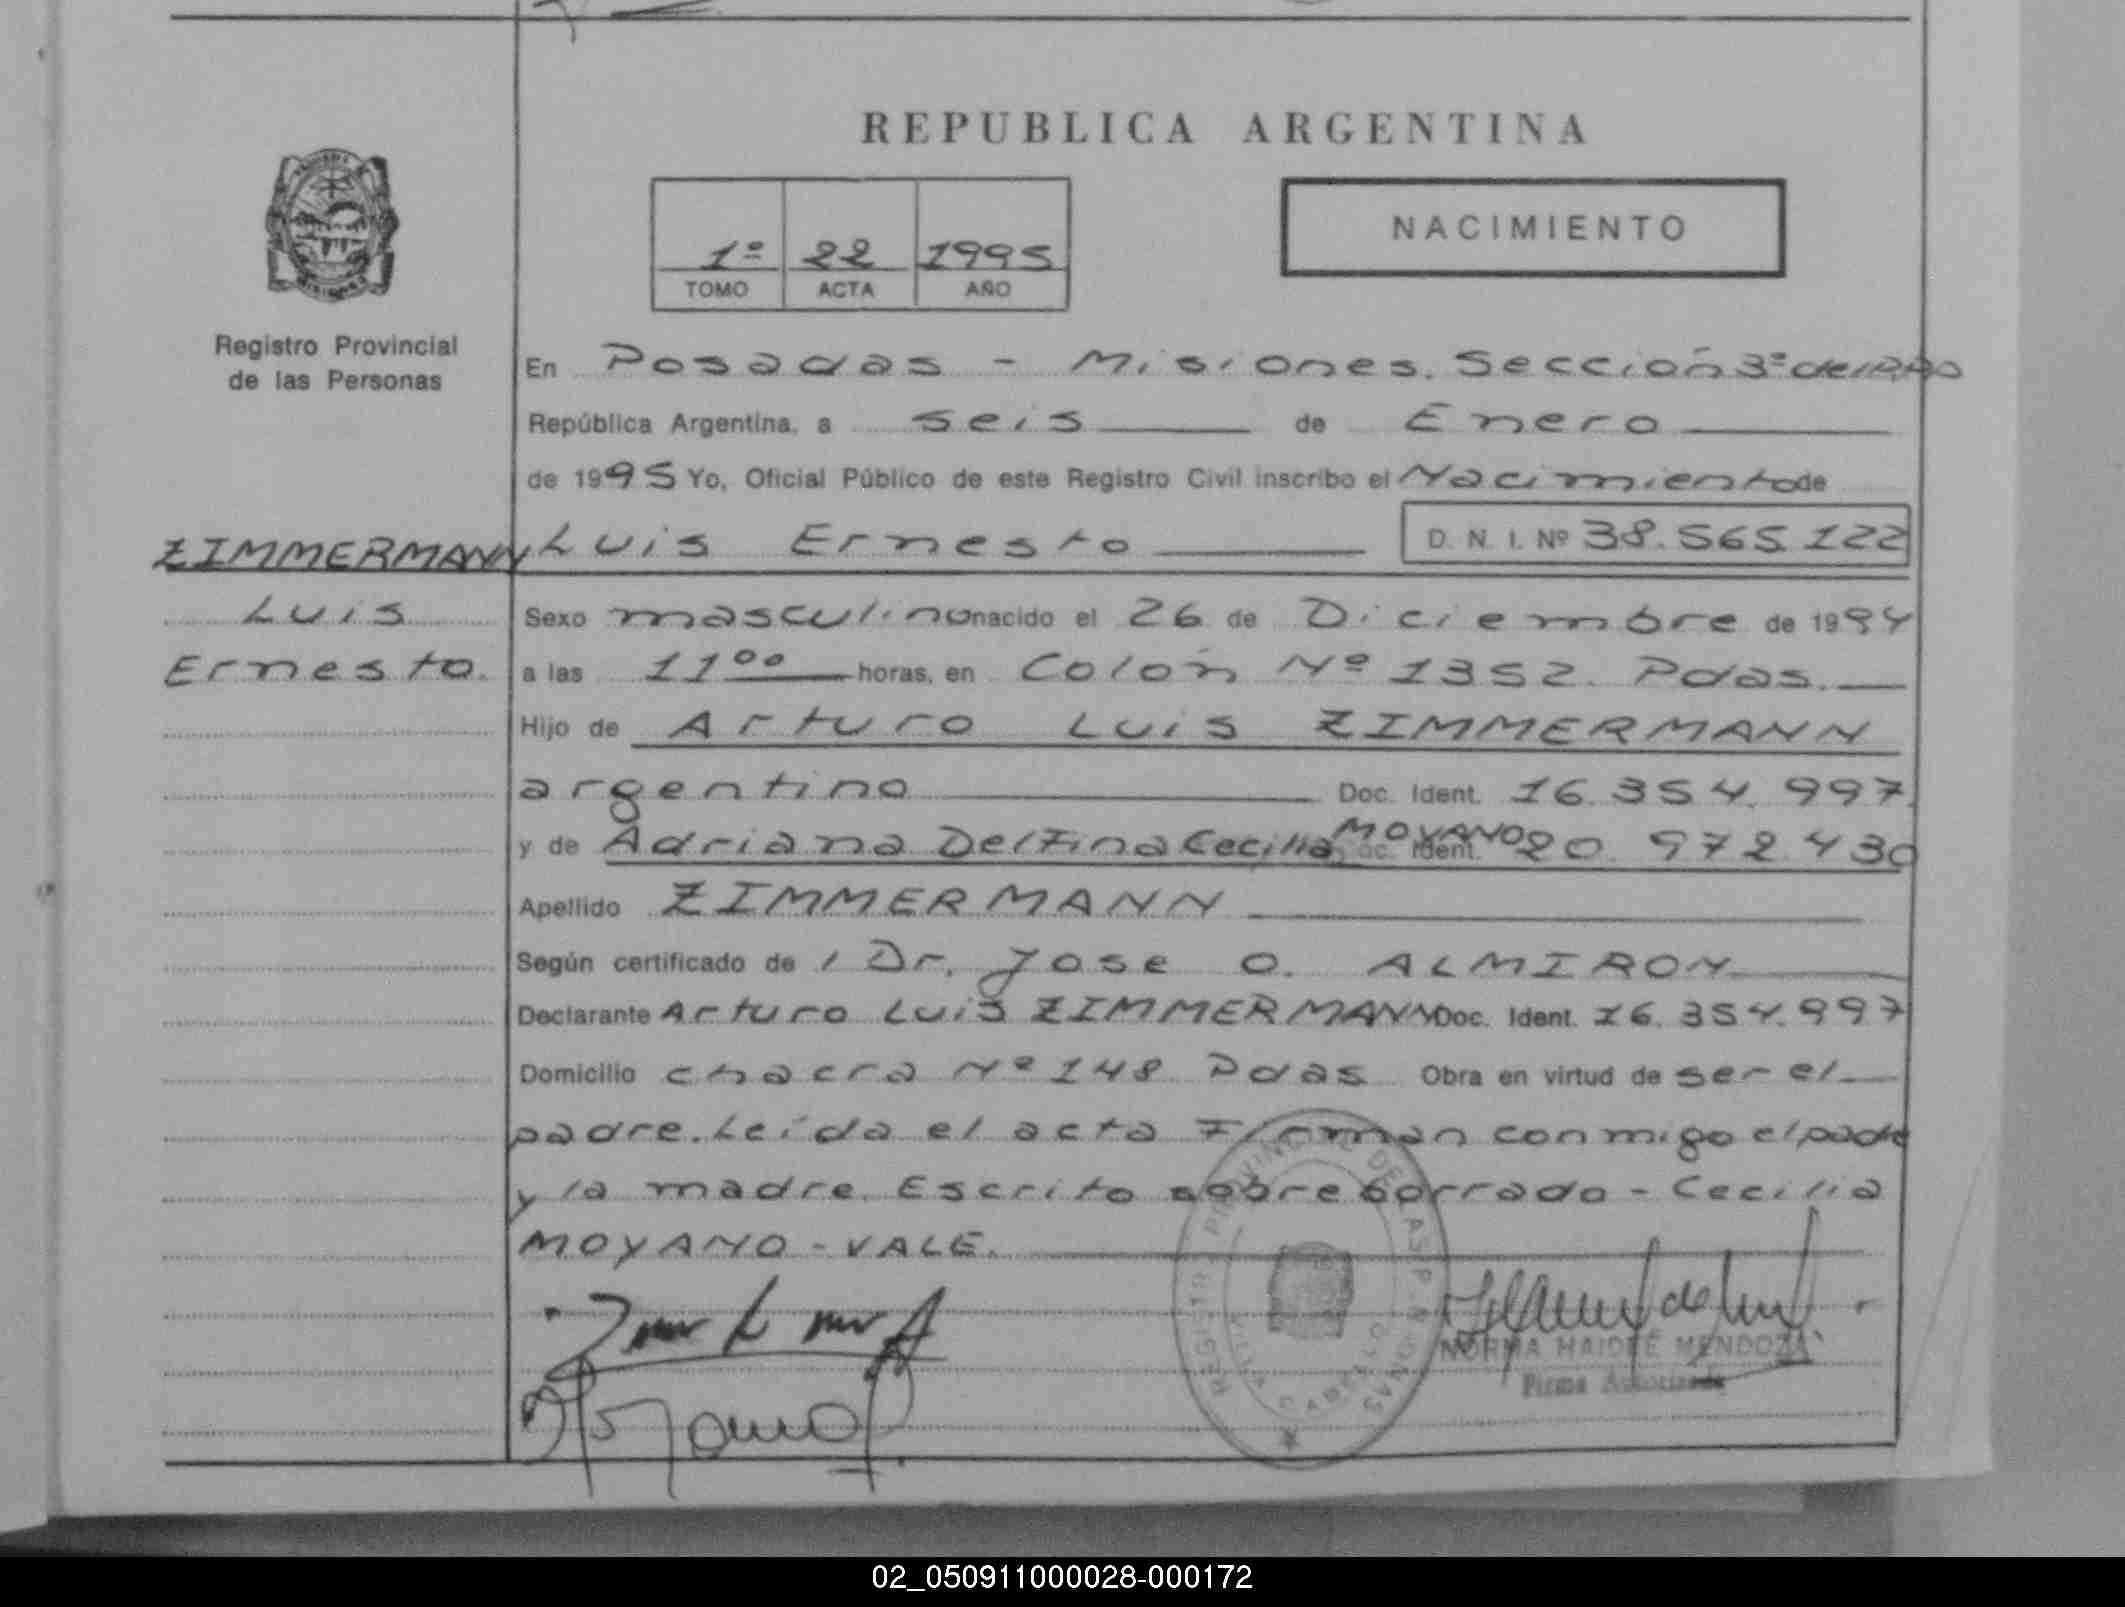 REPUBLICA ARGENTINA
1º 22 1995
TOMO ACTA AÑO
NACIMIENTO
Registro Provincial
de las Personas
ZIMMERMANN
Luis
Ernesto.
En Posadas - Misiones. Sección 3ª
República Argentina, a seis de Enero
de 1995 Yo, Oficial Público de este Registro Civil inscribo el Nacimiento de
Luis Ernesto D. N. I. Nº 38.565.122
Sexo masculino nacido el 26 de Diciembre de 1994
a las 11ºº horas, en Colón Nº 1352. Pdas.
Hijo de Arturo Luis ZIMMERMANN
argentino Doc. Ident. 16.354.997.
y de Adriana Delfina Cecilia MOYANO Doc. Ident. 20.972.430
Apellido ZIMMERMANN
Según certificado de / Dr. Jose O. ALMIRON
Declarante Arturo Luis ZIMMERMANN Doc. Ident. 16.354.997
Domicilio chacra Nº 148 Pdas Obra en virtud de ser el
padre. Leída el acta Firman conmigo el padre
y la madre. Escrito sobre borrado - Cecilia
MOYANO - VALE.
REGISTRO PROVINCIAL DE LAS PERSONAS
VILLA CABELLO
NORMA HAIDEÉ MENDOZA
Firma Autorizada
02_050911000028-000172